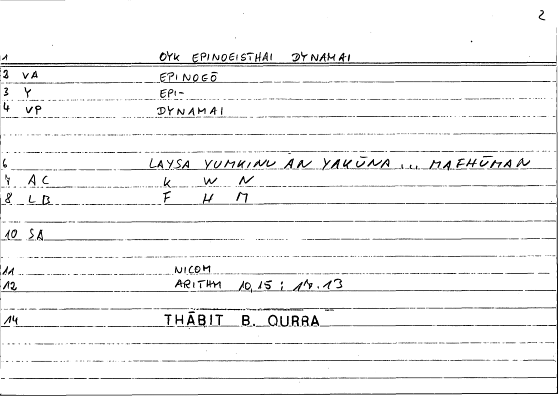 2
1 OYK EPINOEISTHAI DYNAMAI
2 VA EPINOEŌ
3 Y EPI-
4 VP DYNAMAI
6 LAYSA YUMKINU AN YAKŪNA ... MAFHŪMAN
7 AC K W N
8 LB F H M
10 SA
11 NICOM
12 ARITHM 10,15 ; 17.13
14 THĀBIT B. QURRA